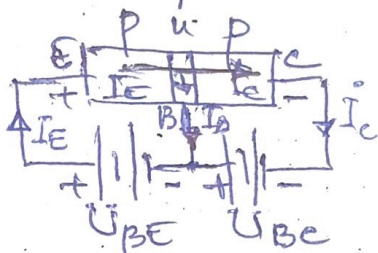 p n p
E C
I_E I_C
+ B I_B -
I_E I_C
+ - + -
U_BE U_BC